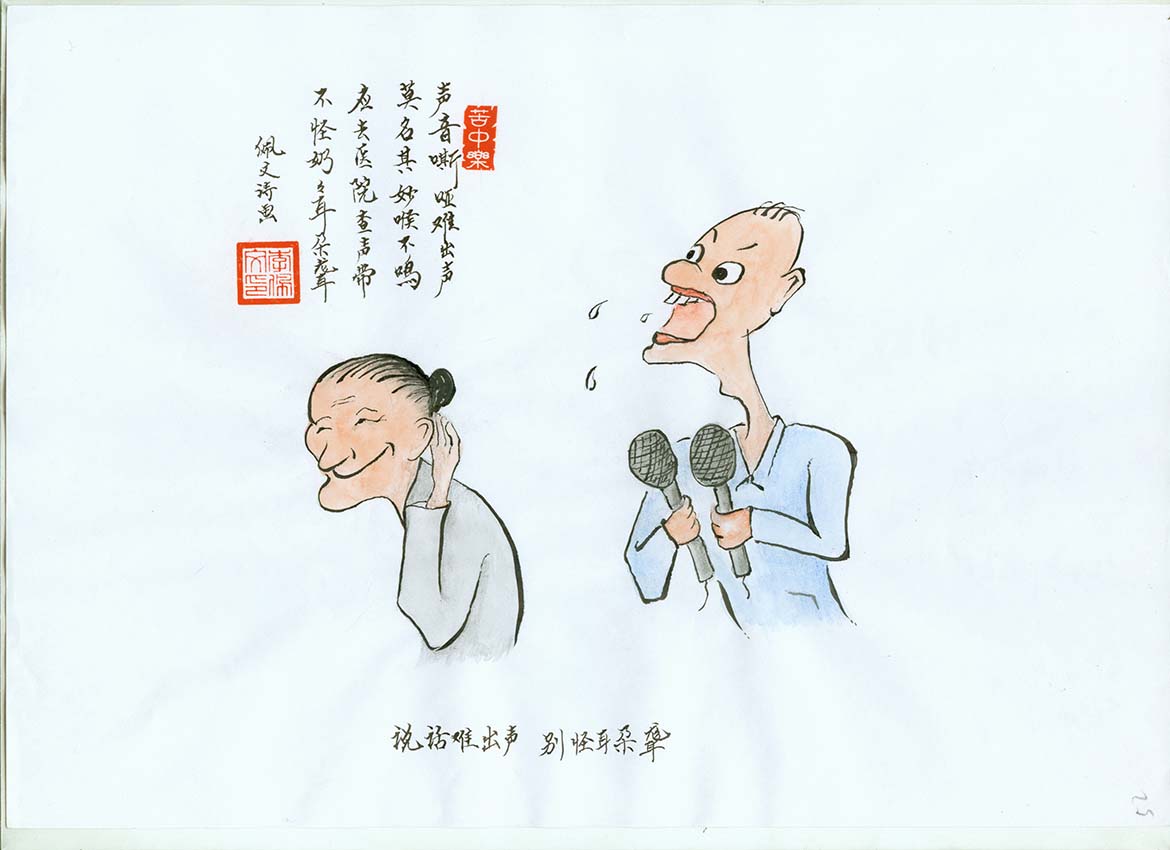 苦中樂
声音嘶哑难出声
莫名其妙喉不鸣
应去医院查声带
不怪奶々耳朵聋
佩文诗画
李佩文印
说话难出声 别怪耳朵聋
25